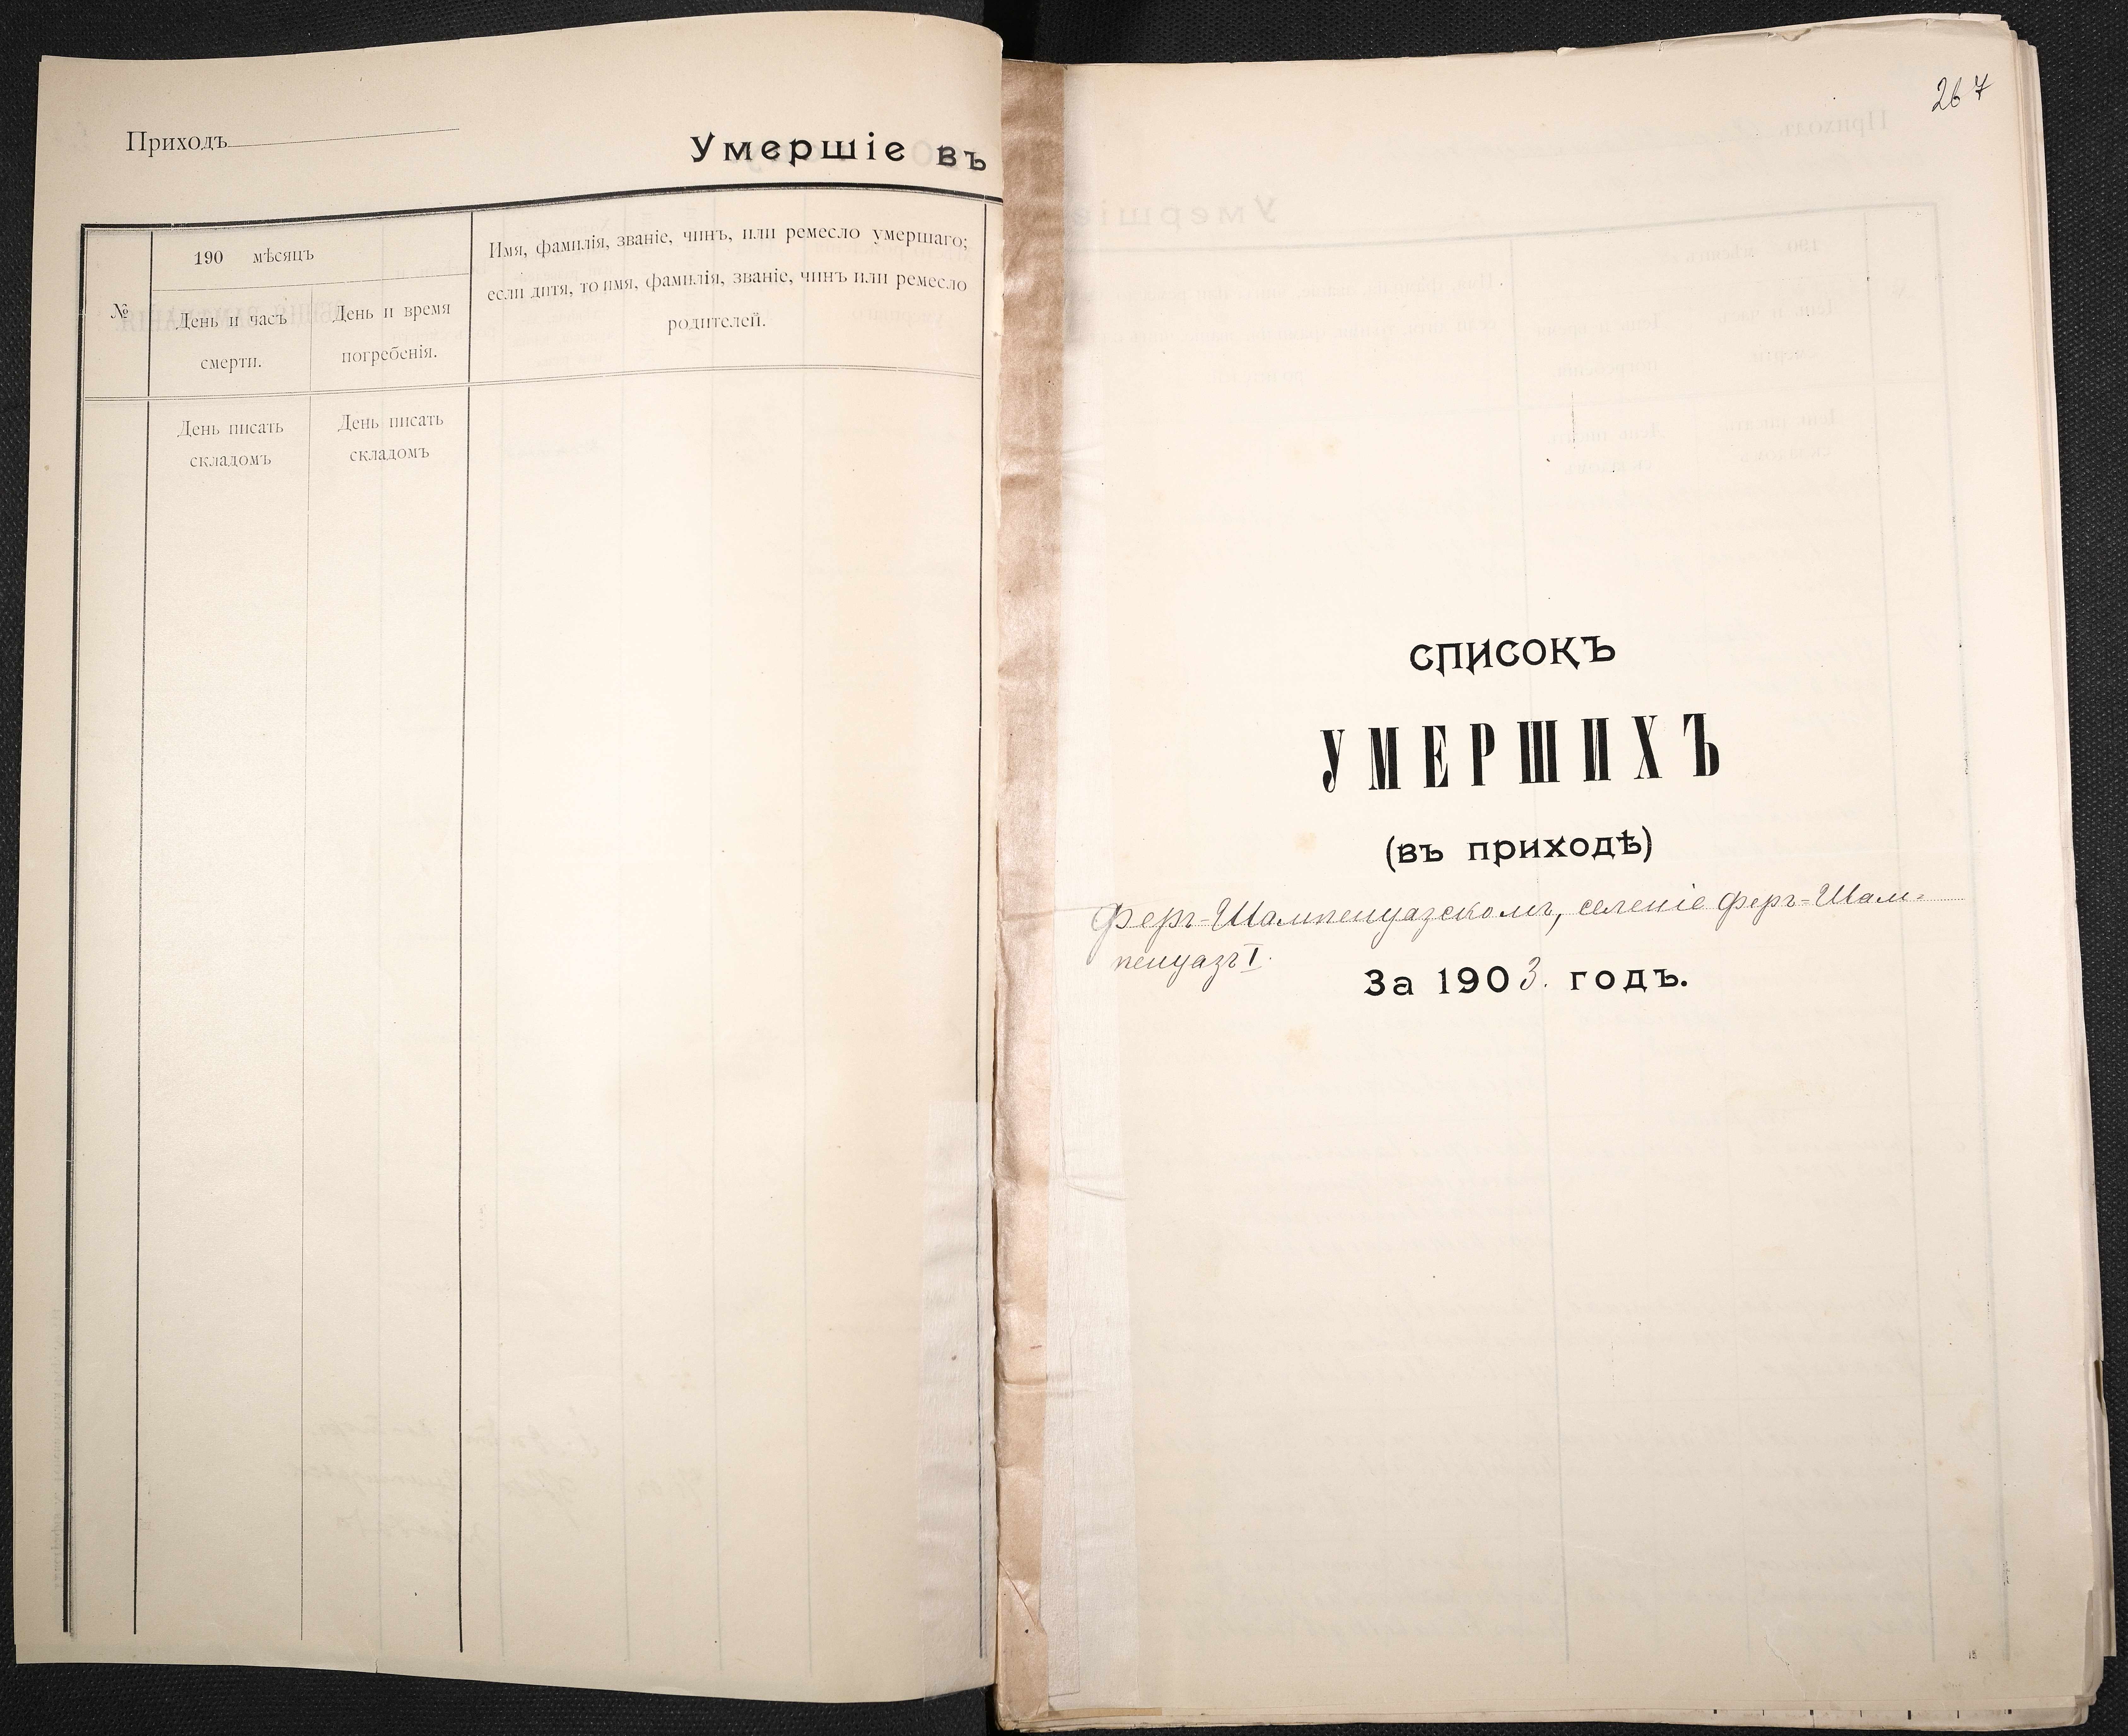 Приходъ
Умершіе въ
№
190 мѣсяцъ
День и часъ
смерти.
День и время
погребенія.
Имя, фамилія, званіе, чинъ, или ремесло умершаго;
если дитя, то имя, фамилія, званіе, чинъ или ремесло
родителей.
День писать
складомъ
День писать
складомъ
267
СПИСОКЪ
УМЕРШИХЪ
(въ приходѣ)
Феръ-Шампенуазскомъ, селеніе Феръ-Шам-
пенуазъ I.
За 1903. годъ.